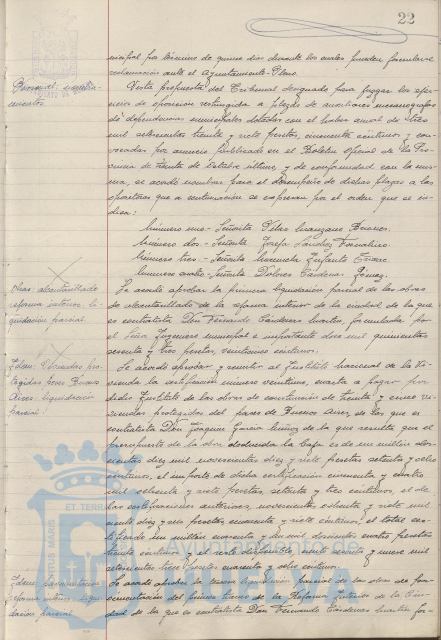 22
nicipal por término de quince días durante los cuales pueden formularse
reclamación ante el Ayuntamiento Pleno.
Personal: nombra-
mientos
Vista propuesta del Tribunal designado para juzgar los ejer-
cicios de oposición restringida a plazas de auxiliares mecanógrafos
de dependencias municipales dotadas con el haber anual de
mil setecientas treinta y siete pesetas, cincuenta céntimos y con-
vocadas por anuncio publicado en el Boletín Oficial de la Pro-
vincia de treinta de Octubre último, y de conformidad con la mis-
ma, se acordó nombrar para el desempeño de dichas plazas a las
opositoras que a continuación se expresan por el orden que se in-
dica:
Número uno.- Señorita Pilar
Número dos.- Señorita Josefa Sánchez
Número tres.- Señorita
Número cuatro.- Señorita Dolores Cárdenas Gómez.
Obras alcantarillado
reforma interior: li-
quidación parcial.
Se acordó aprobar la primera liquidación parcial de las obras
de alcantarillado de la reforma interior de la ciudad de la que
es contratista Don Fernando Cárdenas Huertas, formulada por
el Señor Ingeniero municipal e importante dos mil quinientas
sesenta y tres pesetas, céntimos.
Idem: Viviendas pro-
tegidas pases Buenos
Aires: liquidación
parcial:
Se acordó aprobar y remitir al Instituto Nacional de la Vi-
vienda la certificación número veintiuno, cuarta a pagar por
dicho Instituto de las obras de construcción de treinta y cinco vi-
viendas protegidas del paseo de Buenos Aires, de las que es
contratista Don Joaquín García Muñoz, de la que resulta que el
presupuesto de la obra deducida la baja es de un millón dos-
cientas diez mil, novecientas diez y siete pesetas setenta y ocho
céntimos, el importe de dicha certificación cincuenta y cuatro
mil ochenta y siete pesetas, setenta y tres céntimos, el de
las certificaciones anteriores, novecientas ochenta y siete mil
ciento diez y seis pesetas cuarenta y siete céntimos, el total cer-
tificado un millón cuarenta y un mil doscientas cuatro pesetas
veinte céntimos y el resto disponible, mil sesenta y nueve mil
setecientas trece pesetas cincuenta y ocho céntimos.
Idem: pavimentación
reforma interior: liqui-
dación parcial
Se acordó aprobar la tercera liquidación parcial de las obras de pavi-
mentación del primer tramo de la Reforma Interior de la Ciu-
dad de la que es contratista Don Fernando Cárdenas Huertas for-
ET TERRA
Ayuntamiento de